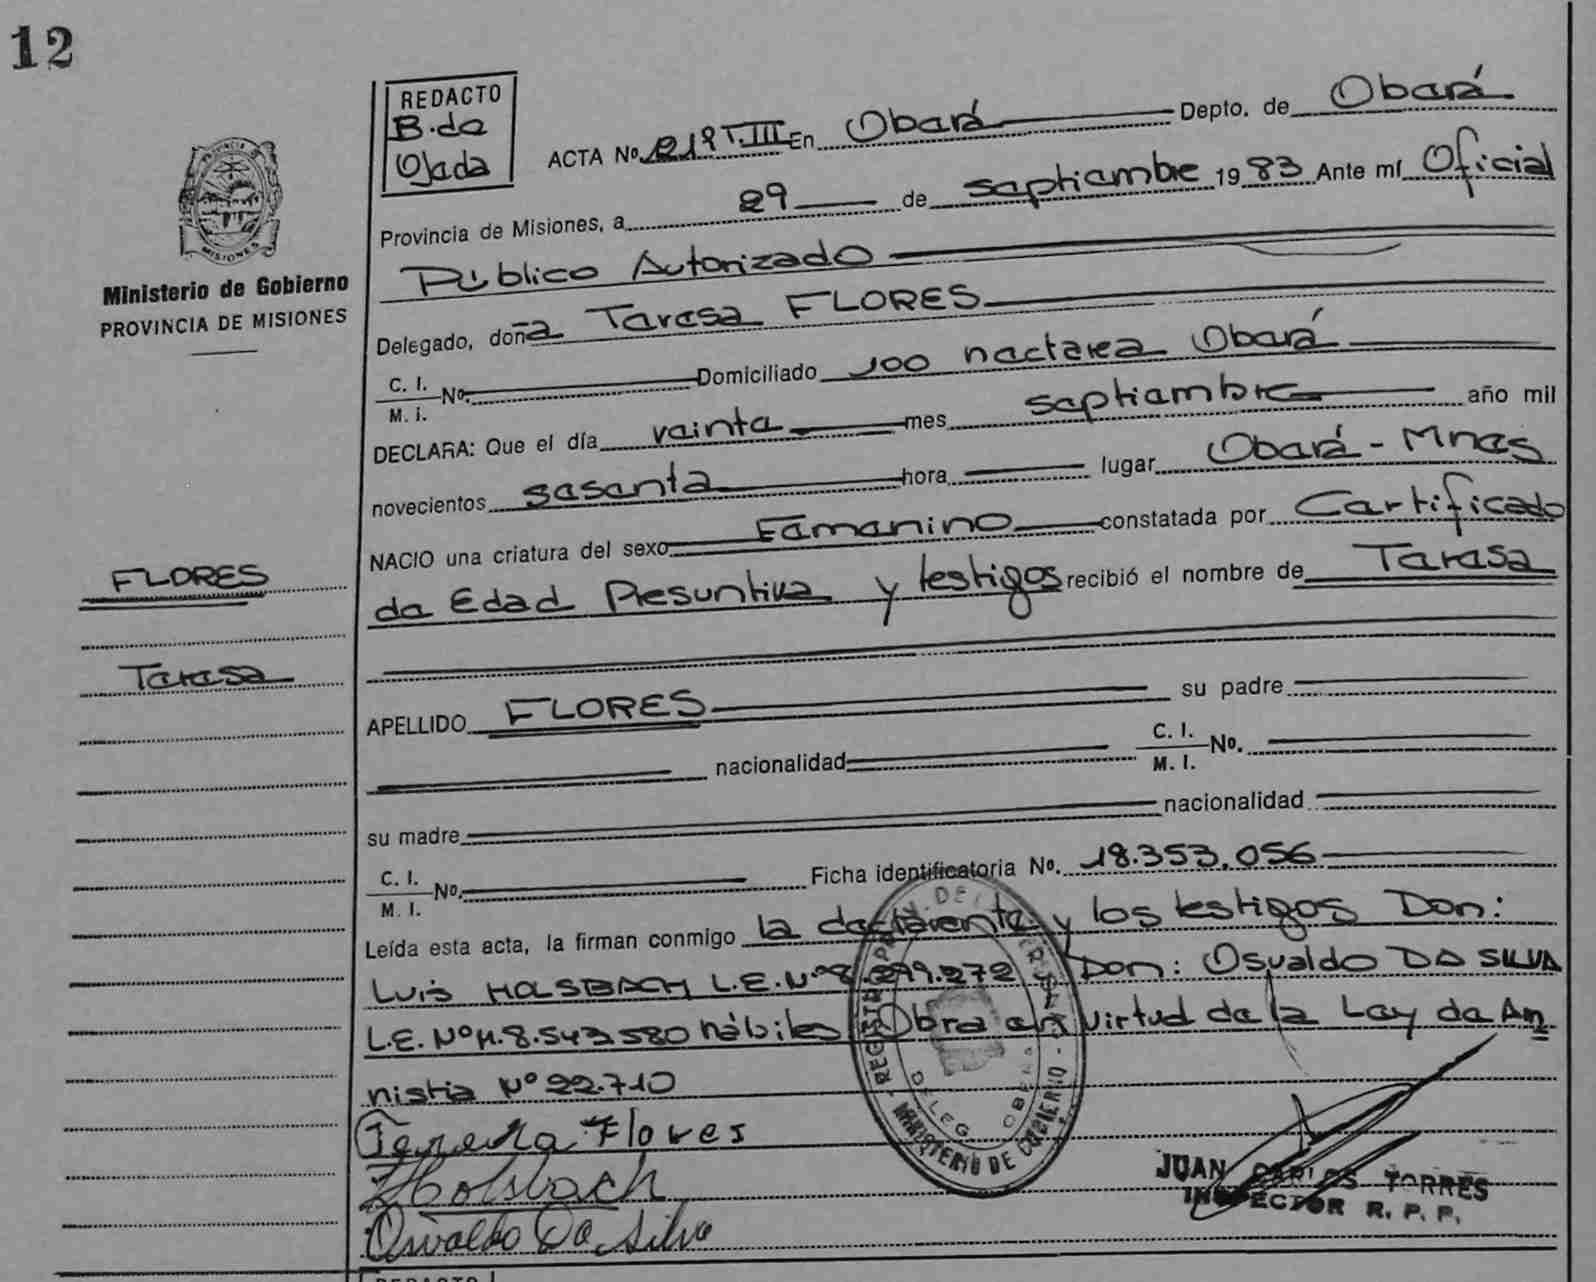 12
REDACTO
B. de
Ojeda
ACTA Nº 219 T.III En Oberá Depto. de Oberá
Provincia de Misiones, a 29 de septiembre 1983 Ante mí Oficial
Público Autorizado
Delegado, doña Teresa FLORES
C. I.
M. I. Nº. Domiciliado 100 hectarea Oberá
DECLARA: Que el día veinte mes septiembre año mil
novecientos sesenta hora lugar Oberá - Mnes
NACIO una criatura del sexo Femenino constatada por Certificado
de Edad Presuntiva y testigos recibió el nombre de Teresa
APELLIDO FLORES su padre
nacionalidad C. I.
M. I. No.
su madre nacionalidad
C. I.
M. I. Nº. Ficha identificatoria Nº. 18.353.056
Leída esta acta, la firman conmigo la declarente y los testigos Don:
Luis HOLSBACH L.E. Nº 8.299.272 Don: Osvaldo DA SILVA
L.E. Nº M.8.543.580 hábiles Obra en virtud de la Ley de Am
nistia Nº 22.710
Teresa Flores
Holsbach
Osvaldo Da Silva
MINISTERIO DE GOBIERNO
DELEG OBERA
JUAN CARLOS TORRES
INSPECTOR R. P. P.
MISIONES
Ministerio de Gobierno
PROVINCIA DE MISIONES
FLORES
Teresa
REDACTO